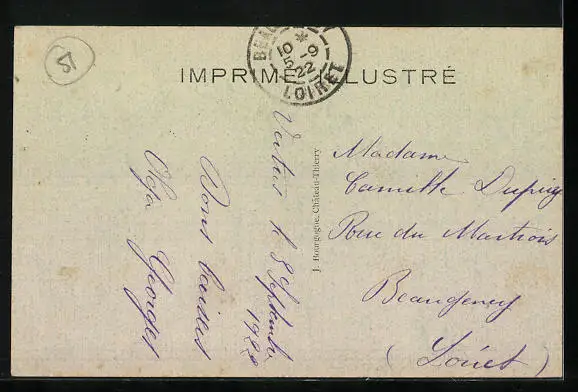 51
BEAU
*
10 - 9
5
22
LOIRET
IMPRIMÉ ILLUSTRÉ
J. Bourgogne, Château-Thierry
Vertus le 8 Septembre
1922
Bons baisers
Olga Georges
Madame
Camille Dupuy
Rue du Martrois
Beaugency
(Loiret)